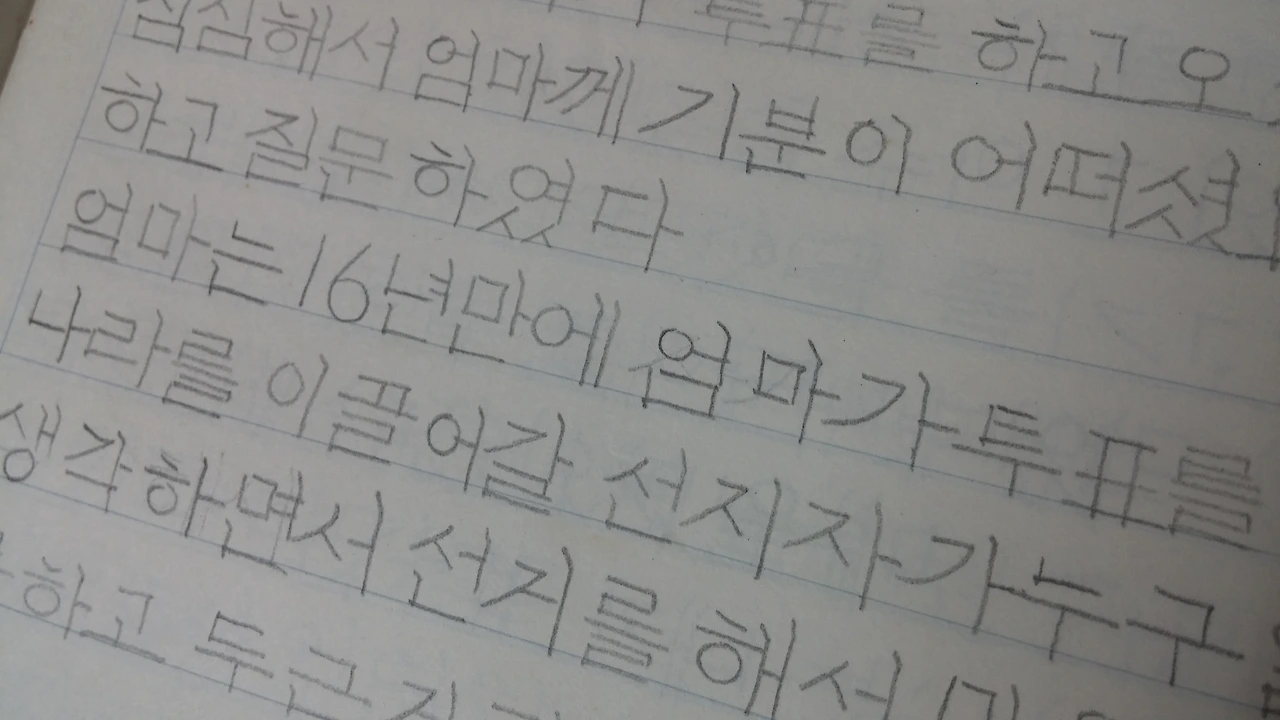 투표를 하고 오
심심해서 엄마께 기분이 어떠셨
하고 질문 하였다
엄마는 16년만에 엄마가 투표를
나라를 이끌어갈 선지자가 누구
생각하면서 선지를 해서
하고 두근